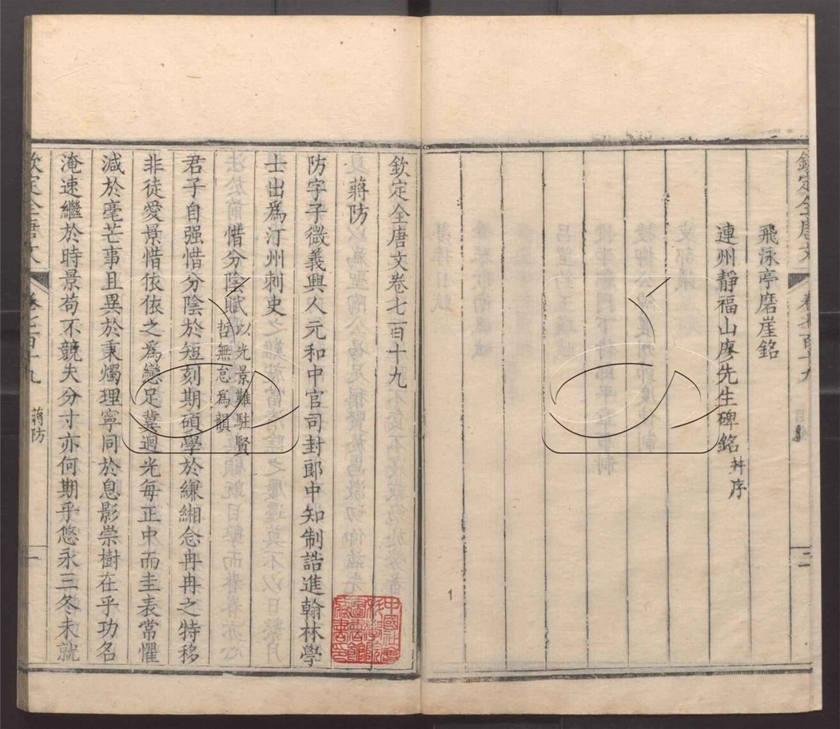 欽定全唐文
卷七百十九
目
二
飛泳亭磨崖銘
連州靜福山廖先生碑銘并序
1
欽定全唐文卷七百十九
蔣防
防字子微義興人元和中官司封郎中知制誥進翰林學
士出為汀州刺史
惜分陰賦以光景難駐賢哲無怠為韻
君子自强惜分陰於短刻期碩學於縑緗念冉冉之特移
非徒愛景惜依依之為戀足冀迴光每正中而圭表常懼
減於毫芒事且異於秉燭理寧同於息影崇樹在乎功名
淹速繼於時景苟不競夫分寸亦何期乎悠永三冬未就
欽定全唐文
卷七百十九
蔣防
一